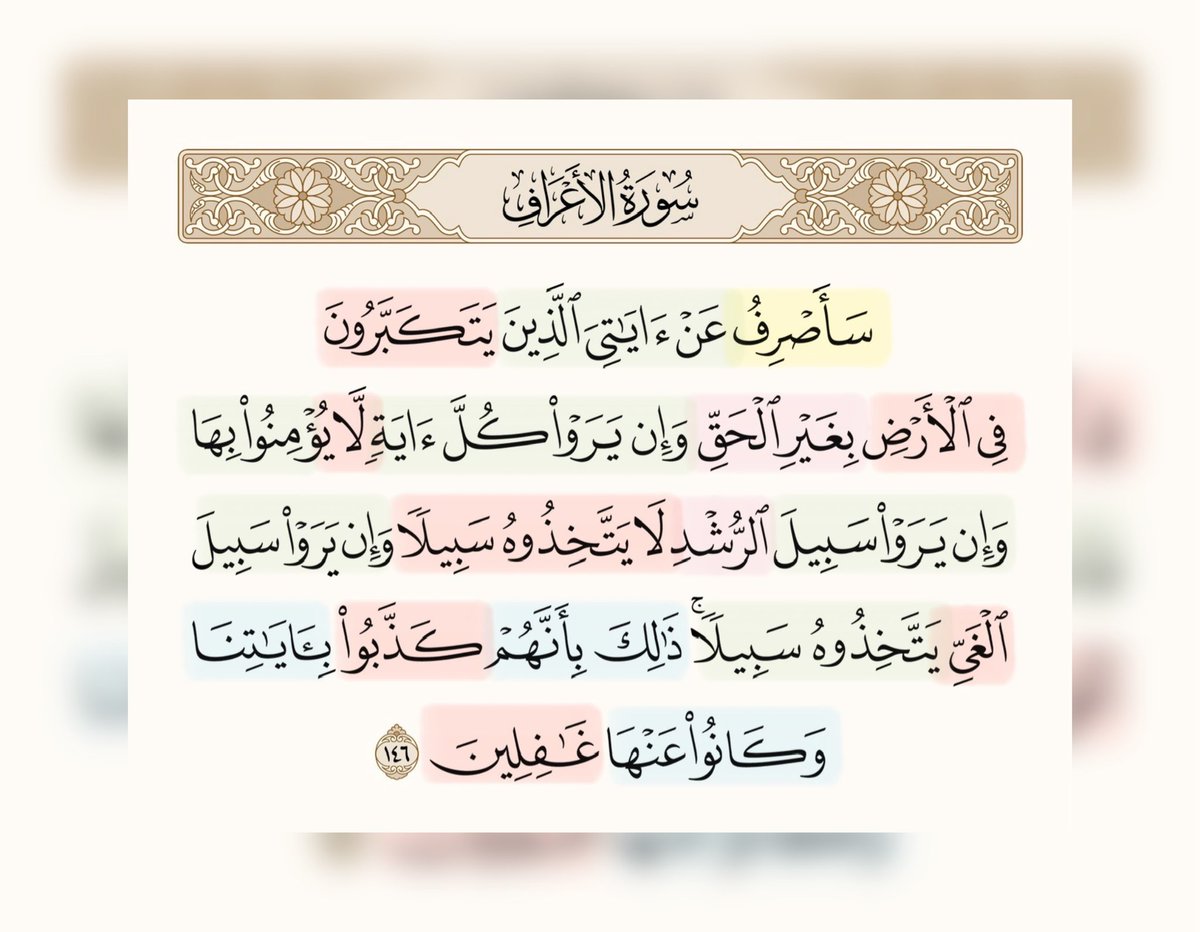 سُورَةُ الأَعْرَافِ
سَأَصْرِفُ عَنْ ءَايَٰتِىَ ٱلَّذِينَ يَتَكَبَّرُونَ
فِى ٱلْأَرْضِ بِغَيْرِ ٱلْحَقِّ وَإِن يَرَوْا۟ كُلَّ ءَايَةٍ لَّا يُؤْمِنُوا۟ بِهَا
وَإِن يَرَوْا۟ سَبِيلَ ٱلرُّشْدِ لَا يَتَّخِذُوهُ سَبِيلًا وَإِن يَرَوْا۟ سَبِيلَ
ٱلْغَىِّ يَتَّخِذُوهُ سَبِيلًا ۚ ذَٰلِكَ بِأَنَّهُمْ كَذَّبُوا۟ بِـَٔايَٰتِنَا
وَكَانُوا۟ عَنْهَا غَٰفِلِينَ ١٤٦